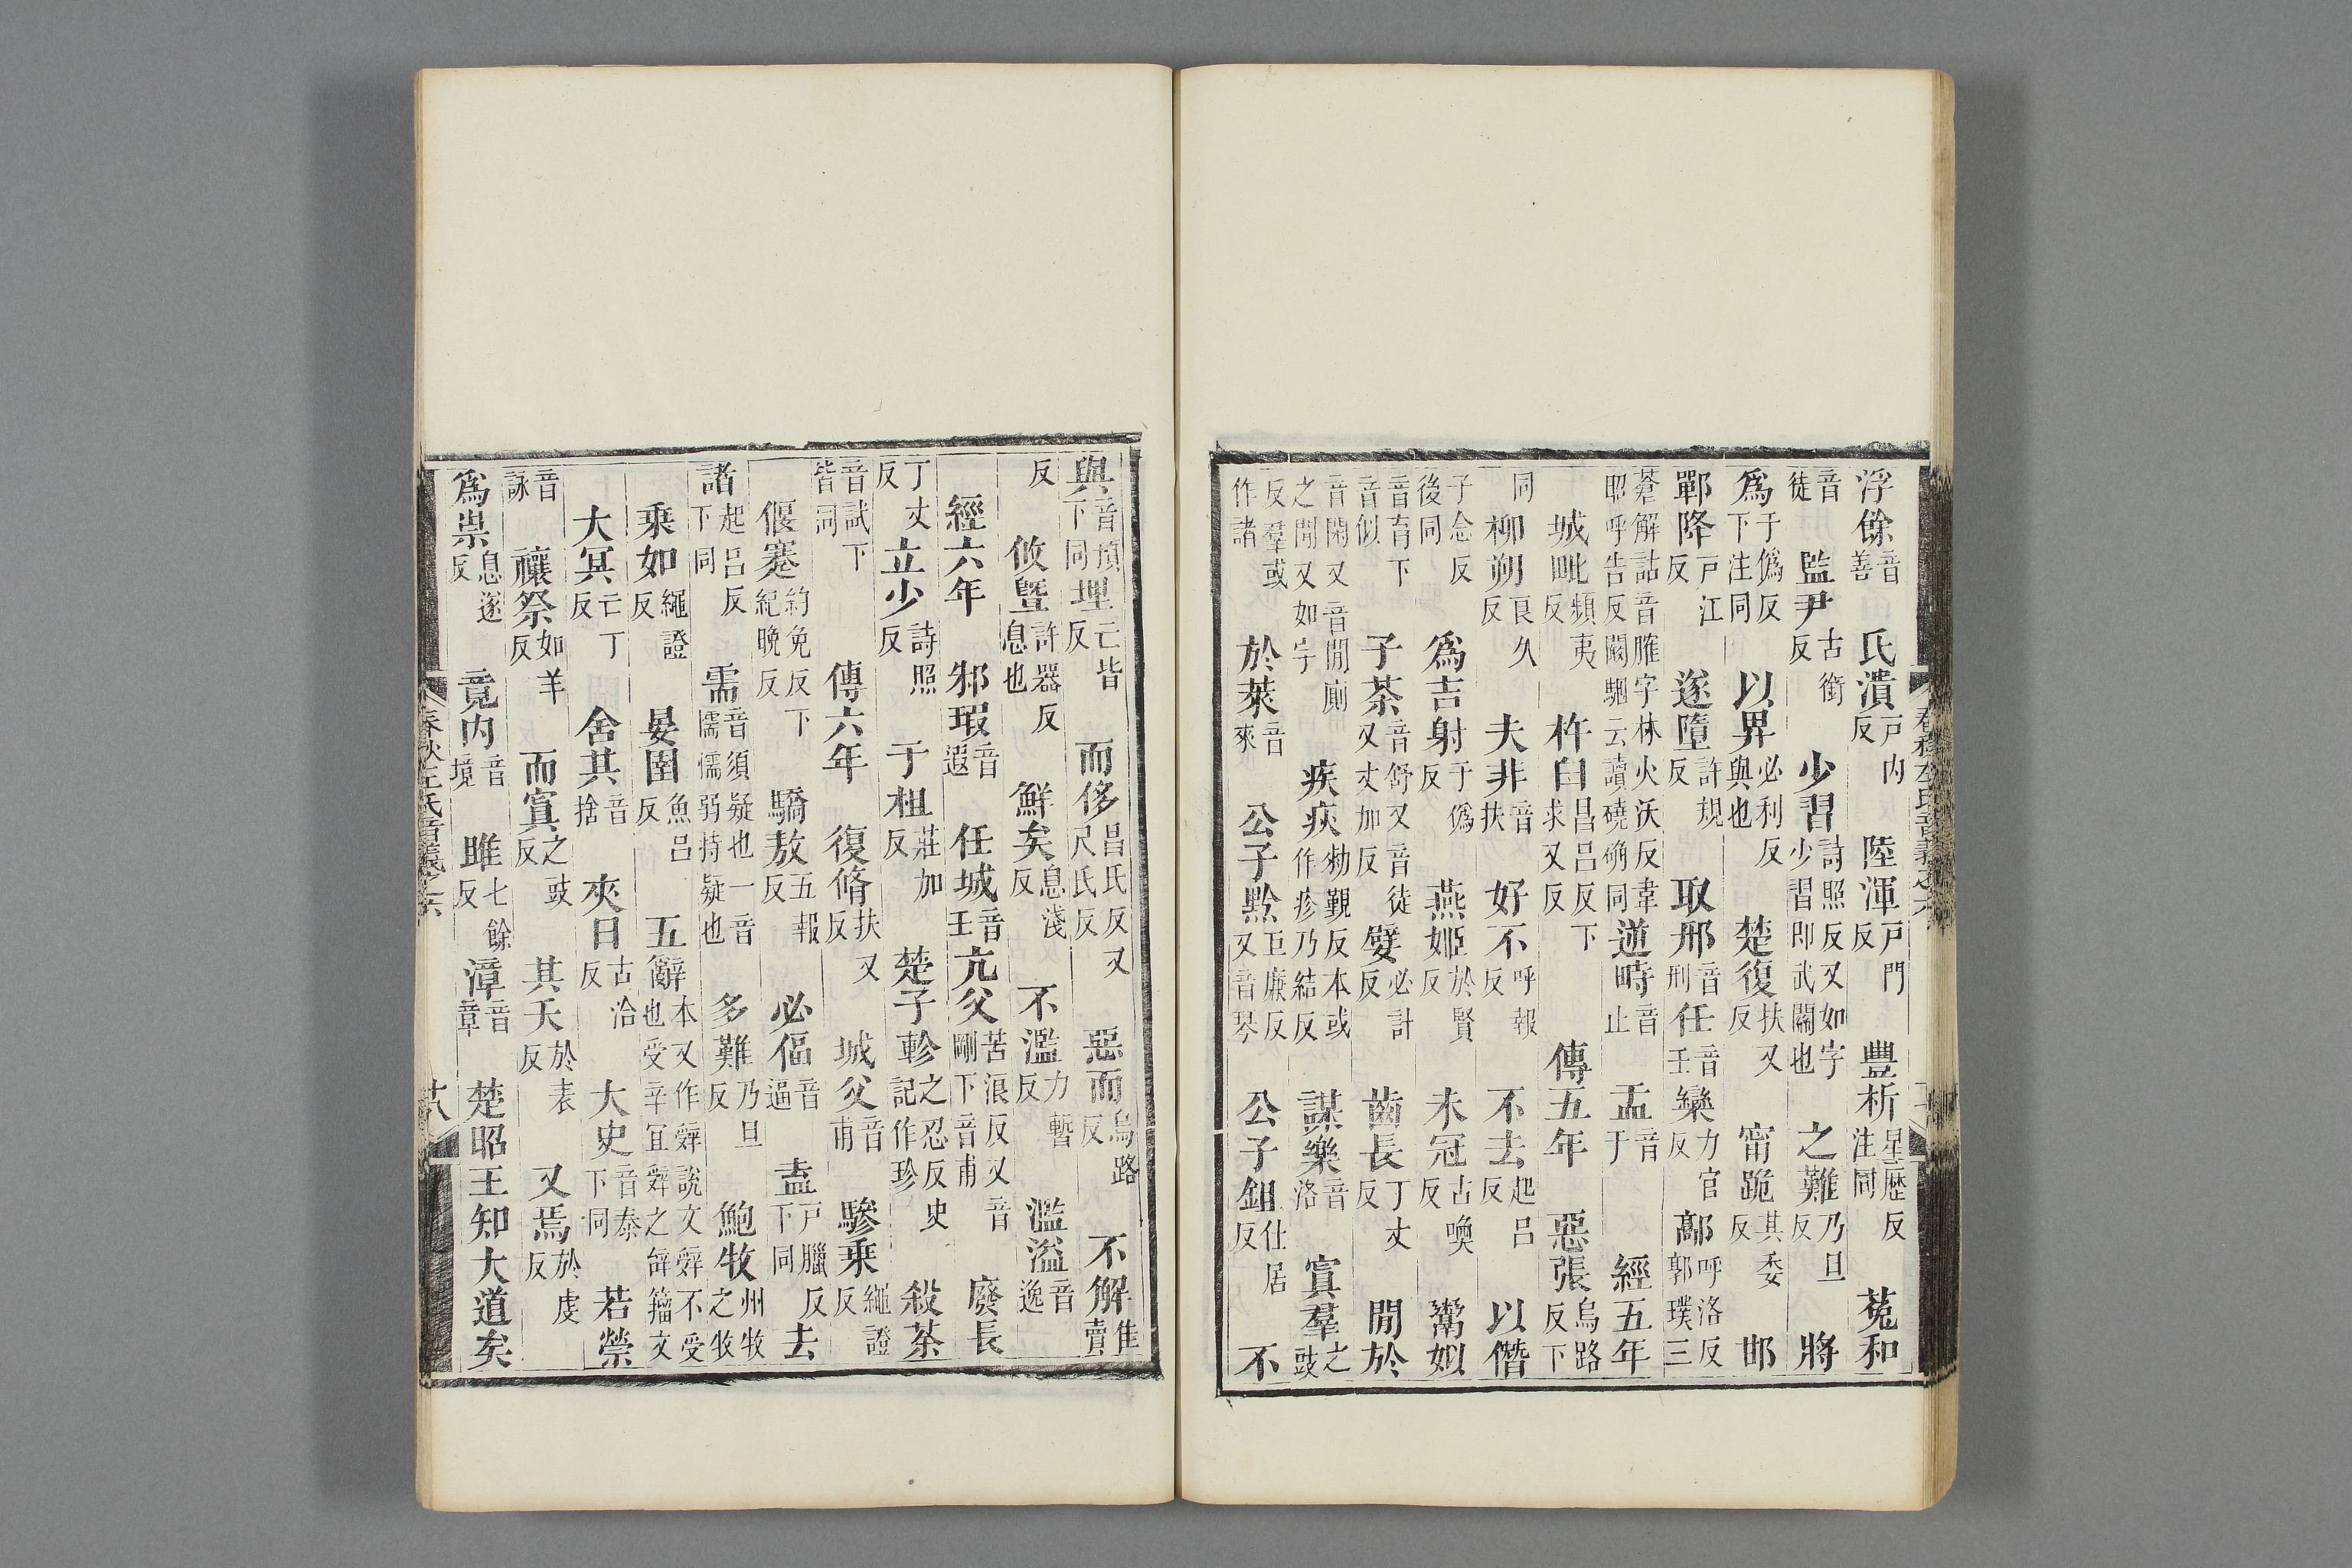 浮餘音善 氏潰戸内反 陸渾戸門反 豐析星歷反注同 菟和
音徒 監尹古銜反 少習詩照反又如字少習即武關也 之難乃旦反 將
爲于僞反下注同 以畀必利反與也 楚復扶又反 甯跪其委反 邯
鄲降戸江反 遂墮許規反 取邢音刑 任音壬 欒力官反 鄗呼洛反郭璞三
蒼解詁音臛字林火沃反韋昭呼告反闞駰云讀磽确同 逆畤音止 盂音于 經五年
城毗頻夷反 杵臼昌呂反下求又反 傳五年 惡張烏路反下
同 柳朔良久反 夫非音扶 好不呼報反 不去起呂反 以僭
子念反後同 爲吉射于僞反 燕姬於賢反 未冠古喚反 鬻姒
音育下音似 子荼音舒又音徒又丈加反 嬖必計反 齒長丁丈反 閒於
音閑又音閒廁之閒又如字 疾疢勑覲反本或作疹乃結反 謀樂音洛 寘羣之豉
反羣或作諸 於萊音來 公子黔巨廉反又音琴 公子鉏仕居反 不
與音預下同 埋亡皆反 而侈昌氏反又尺氏反 惡而烏路反 不解佳賣
反 攸墍許器反息也 鮮矣息淺反 不濫力暫反 濫溢音逸
經六年 邾瑕音遐 任城音壬 亢父苦浪反又音剛下音甫 廢長
丁丈反 立少詩照反 于柤莊加反 楚子軫之忍反史記作珍 殺荼
音試下皆同 傳六年 復脩扶又反 城父音甫 驂乘繩證反
偃蹇紀晚反又紀免反下 驕敖五報反 必偪音逼 盍戸臘反下同 去
諸起呂反下同 需音須疑也一音儒懦弱持疑也 多難乃旦反 鮑牧州牧之牧
乘如繩證反 晏圉魚呂反 五辭本又作辤說文辤不受也受辛宜辤之辝籀文
大冥亡丁反 舍其音捨 夾日古洽反 大史音泰下同 若禜
音詠 禳祭如羊反 而寘之豉反 其夭於表反 又焉於虔反
爲祟息遂反 竟内音境 雎七餘反 漳音章 楚昭王知大道矣
春秋左氏音義之六 廿八